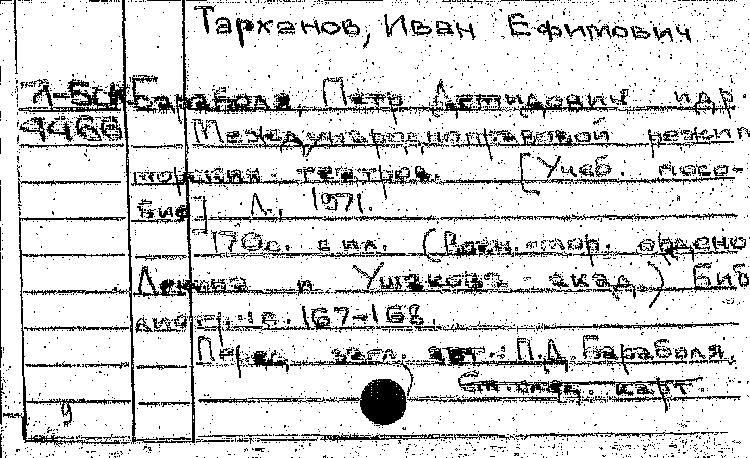 Тарханов, Иван Ефимович
Л-БСК Бараболя, Петр Демидович и др.
4466 Международноправовой режим
морских театров. [Учеб. посо-
бие] Л., 1971.
170с. с ил. (Воен.-мор. ордено
Ленина и Ушакова акад.) Биб
лиогр.: с. 167-168.
Перед загл. авт.: П.Д. Бараболя,
См. след. карт.
9